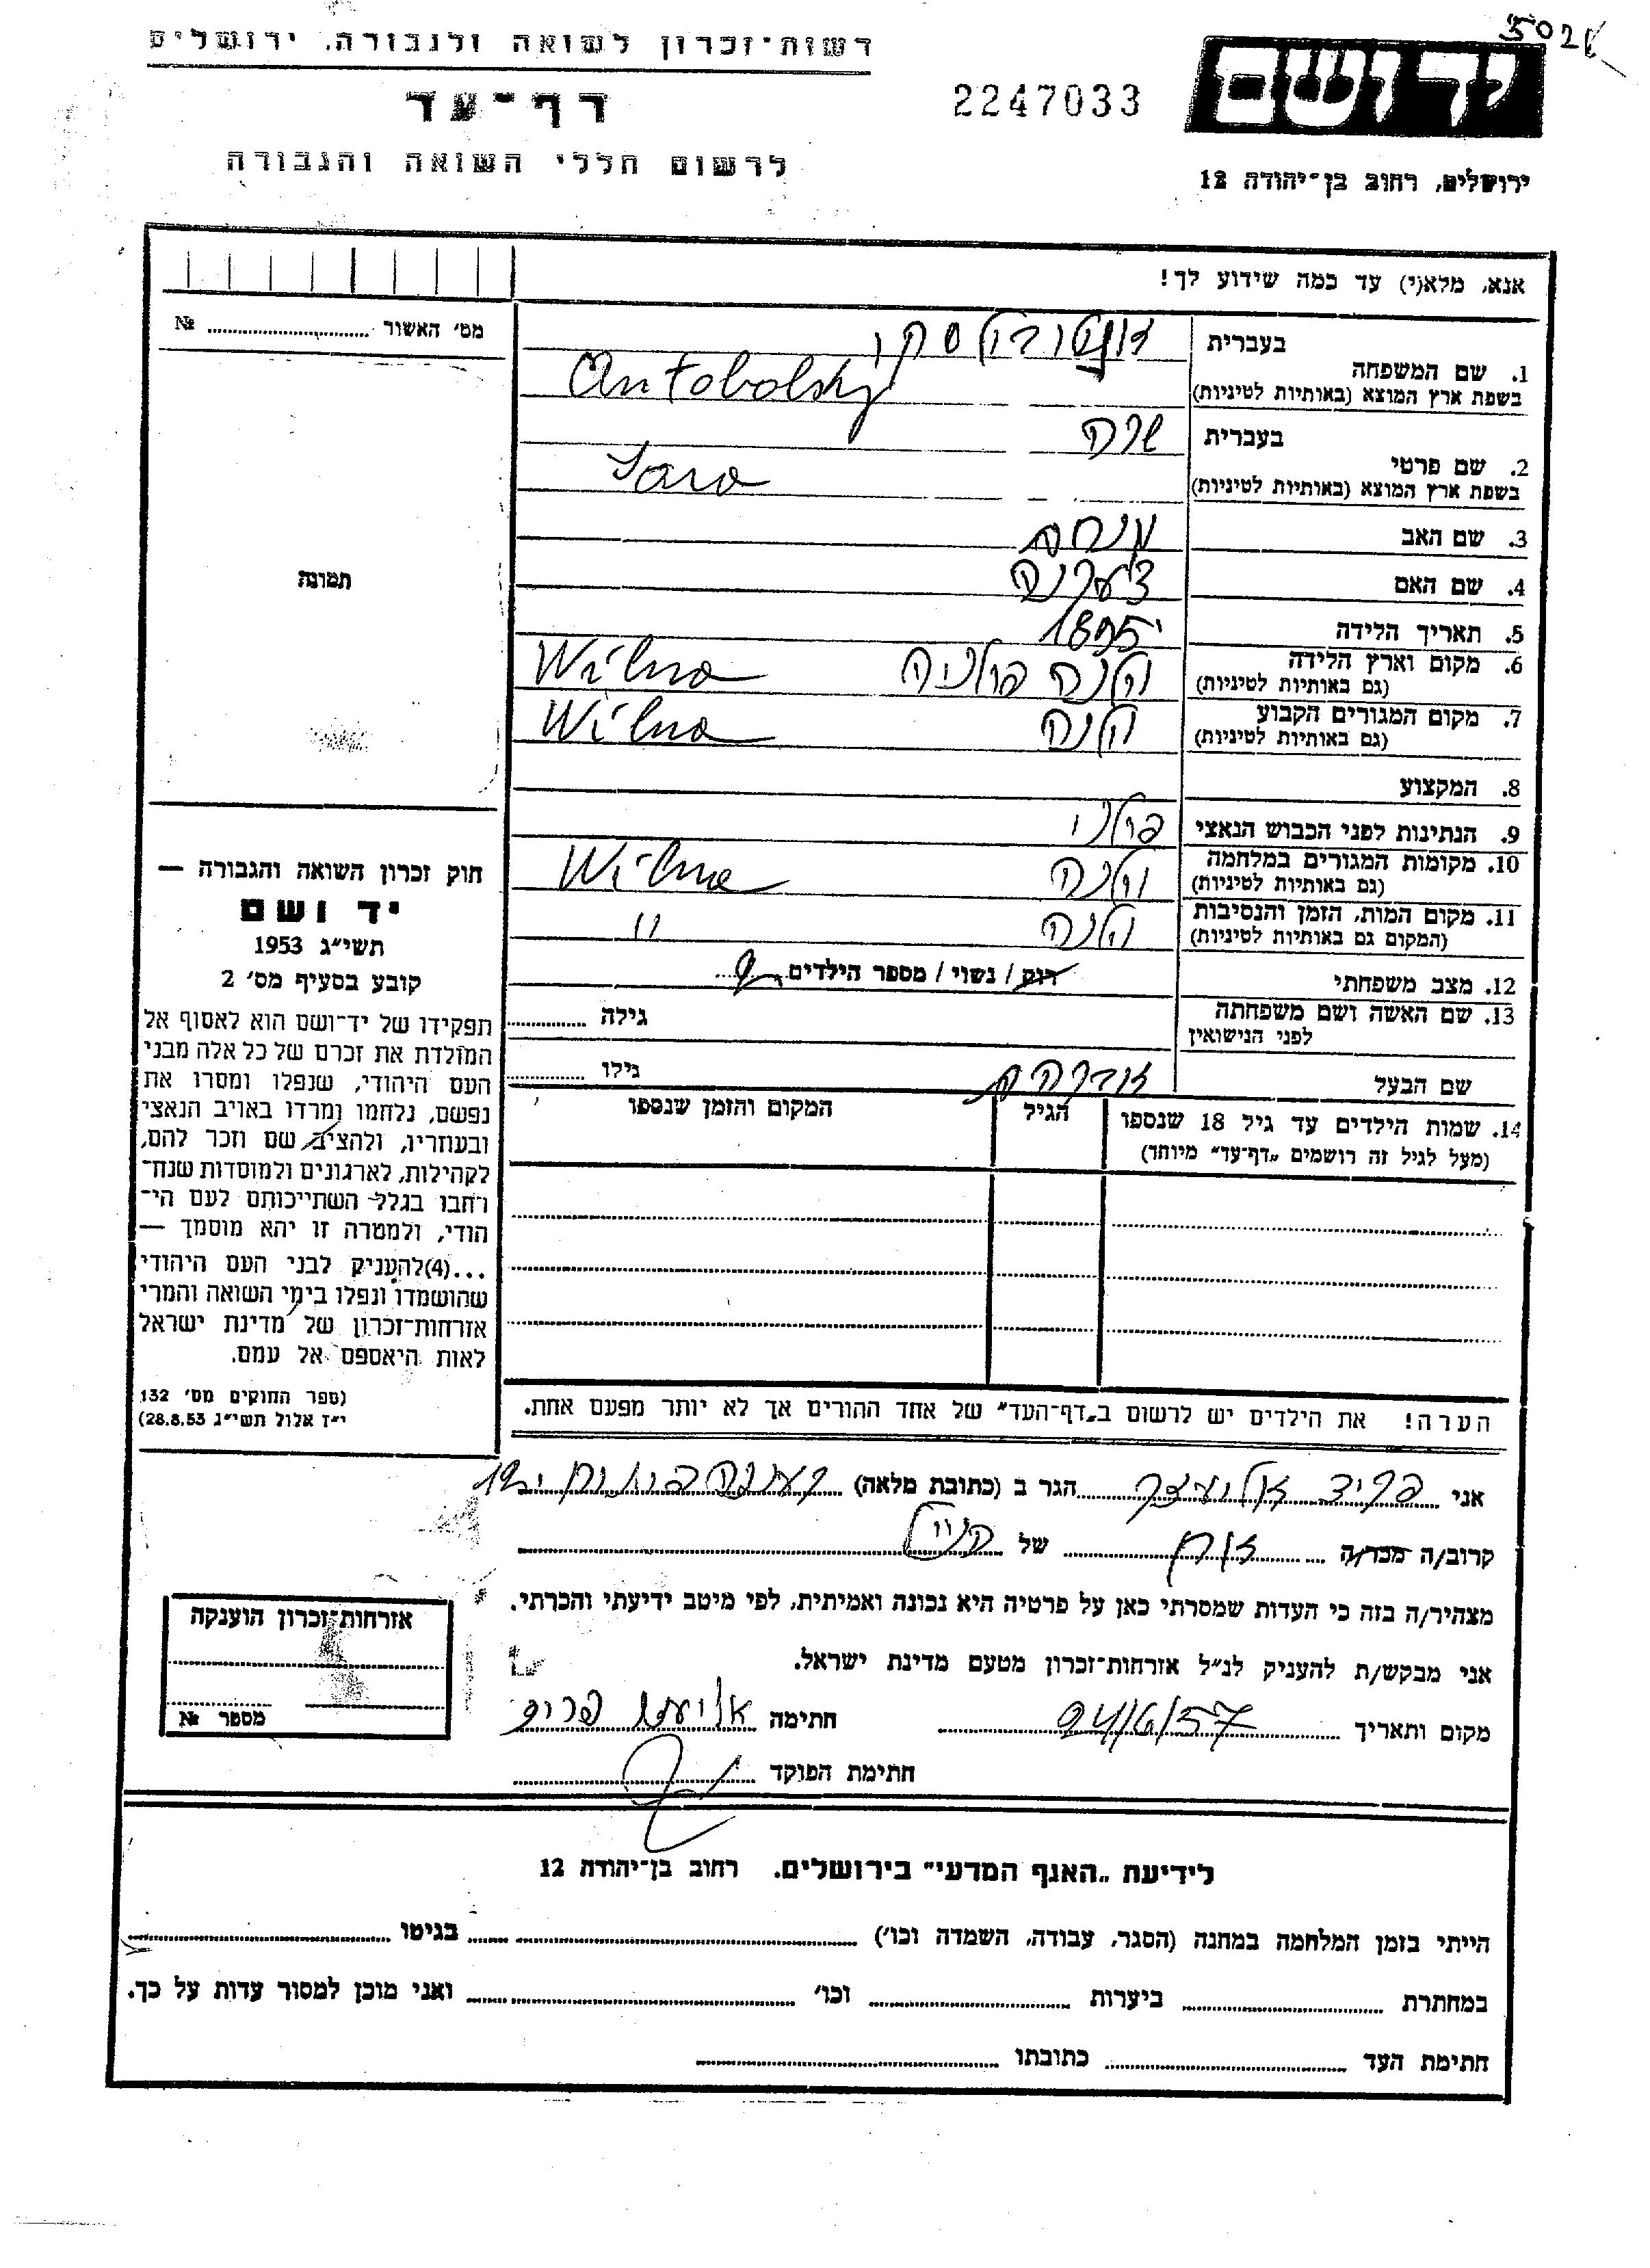 רשות־זכרון לשואה ולגבורה, ירושלים
דף־עד
לרשום חללי השואה והגבורה
2247033
ידושם
ירושלים, רחוב בן־יהודה 12
אנא, מלא(י) עד כמה שידוע לך!
מס׳ האשור № 
תמונה
בעברית
1. שם המשפחה
בשפת ארץ המוצא (באותיות לטיניות) Antobolsky
בעברית שרה
2. שם פרטי
בשפת ארץ המוצא (באותיות לטיניות) Sara
3. שם האב מנחם
4. שם האם
5. תאריך הלידה
6. מקום וארץ הלידה וילנה פולניה Wilna
(גם באותיות לטיניות)
7. מקום המגורים הקבוע וילנה Wilna
(גם באותיות לטיניות)
8. המקצוע
9. הנתינות לפני הכבוש הנאצי פולני
10. מקומות המגורים במלחמה וילנה Wilna
(גם באותיות לטיניות)
11. מקום המות, הזמן והנסיבות וילנה "
(המקום גם באותיות לטיניות)
12. מצב משפחתי רוק / נשוי / מספר הילדים
13. שם האשה ושם משפחתה גילה
לפני הנישואין
שם הבעל אברהם גילו
14. שמות הילדים עד גיל 18 שנספו הגיל המקום והזמן שנספו
(מעל לגיל זה רושמים „דף־עד״ מיוחד)
הערה! את הילדים יש לרשום ב„דף־העד״ של אחד ההורים אך לא יותר מפעם אחת.
חוק זכרון השואה והגבורה —
יד ושם
תשי״ג 1953
קובע בסעיף מס׳ 2
תפקידו של יד־ושם הוא לאסוף אל
המולדת את זכרם של כל אלה מבני
העם היהודי, שנפלו ומסרו את
נפשם, נלחמו ומרדו באויב הנאצי
ובעוזריו, ולהציב שם וזכר להם,
לקהילות, לארגונים ולמוסדות שנח־
רחבו בגלל השתייכותם לעם הי־
הודי, ולמטרה זו יהא מוסמך —
...(4)להעניק לבני העם היהודי
שהושמדו ונפלו בימי השואה והמרי
אזרחות־זכרון של מדינת ישראל
לאות היאספם אל עמם.
(ספר החוקים מס׳ 132,
י״ז אלול תשי״ג 28.8.53)
אני פריד אליעזר הגר ב (כתובת מלאה)
קרוב/ה מכר/ה אח של
מצהיר/ה בזה כי העדות שמסרתי כאן על פרטיה היא נכונה ואמיתית, לפי מיטב ידיעתי והכרתי.
אני מבקש/ת להעניק לנ״ל אזרחות־זכרון מטעם מדינת ישראל.
מקום ותאריך 24/6/57 חתימה
חתימת הפוקד
אזרחות־זכרון הוענקה
מספר №
לידיעת „האגף המדעי״ בירושלים. רחוב בן־יהודה 12
הייתי בזמן המלחמה במחנה (הסגר, עבודה, השמדה וכו׳) בגיטו
במחתרת ביערות וכו׳ ואני מוכן למסור עדות על כך.
חתימת העד כתובתו